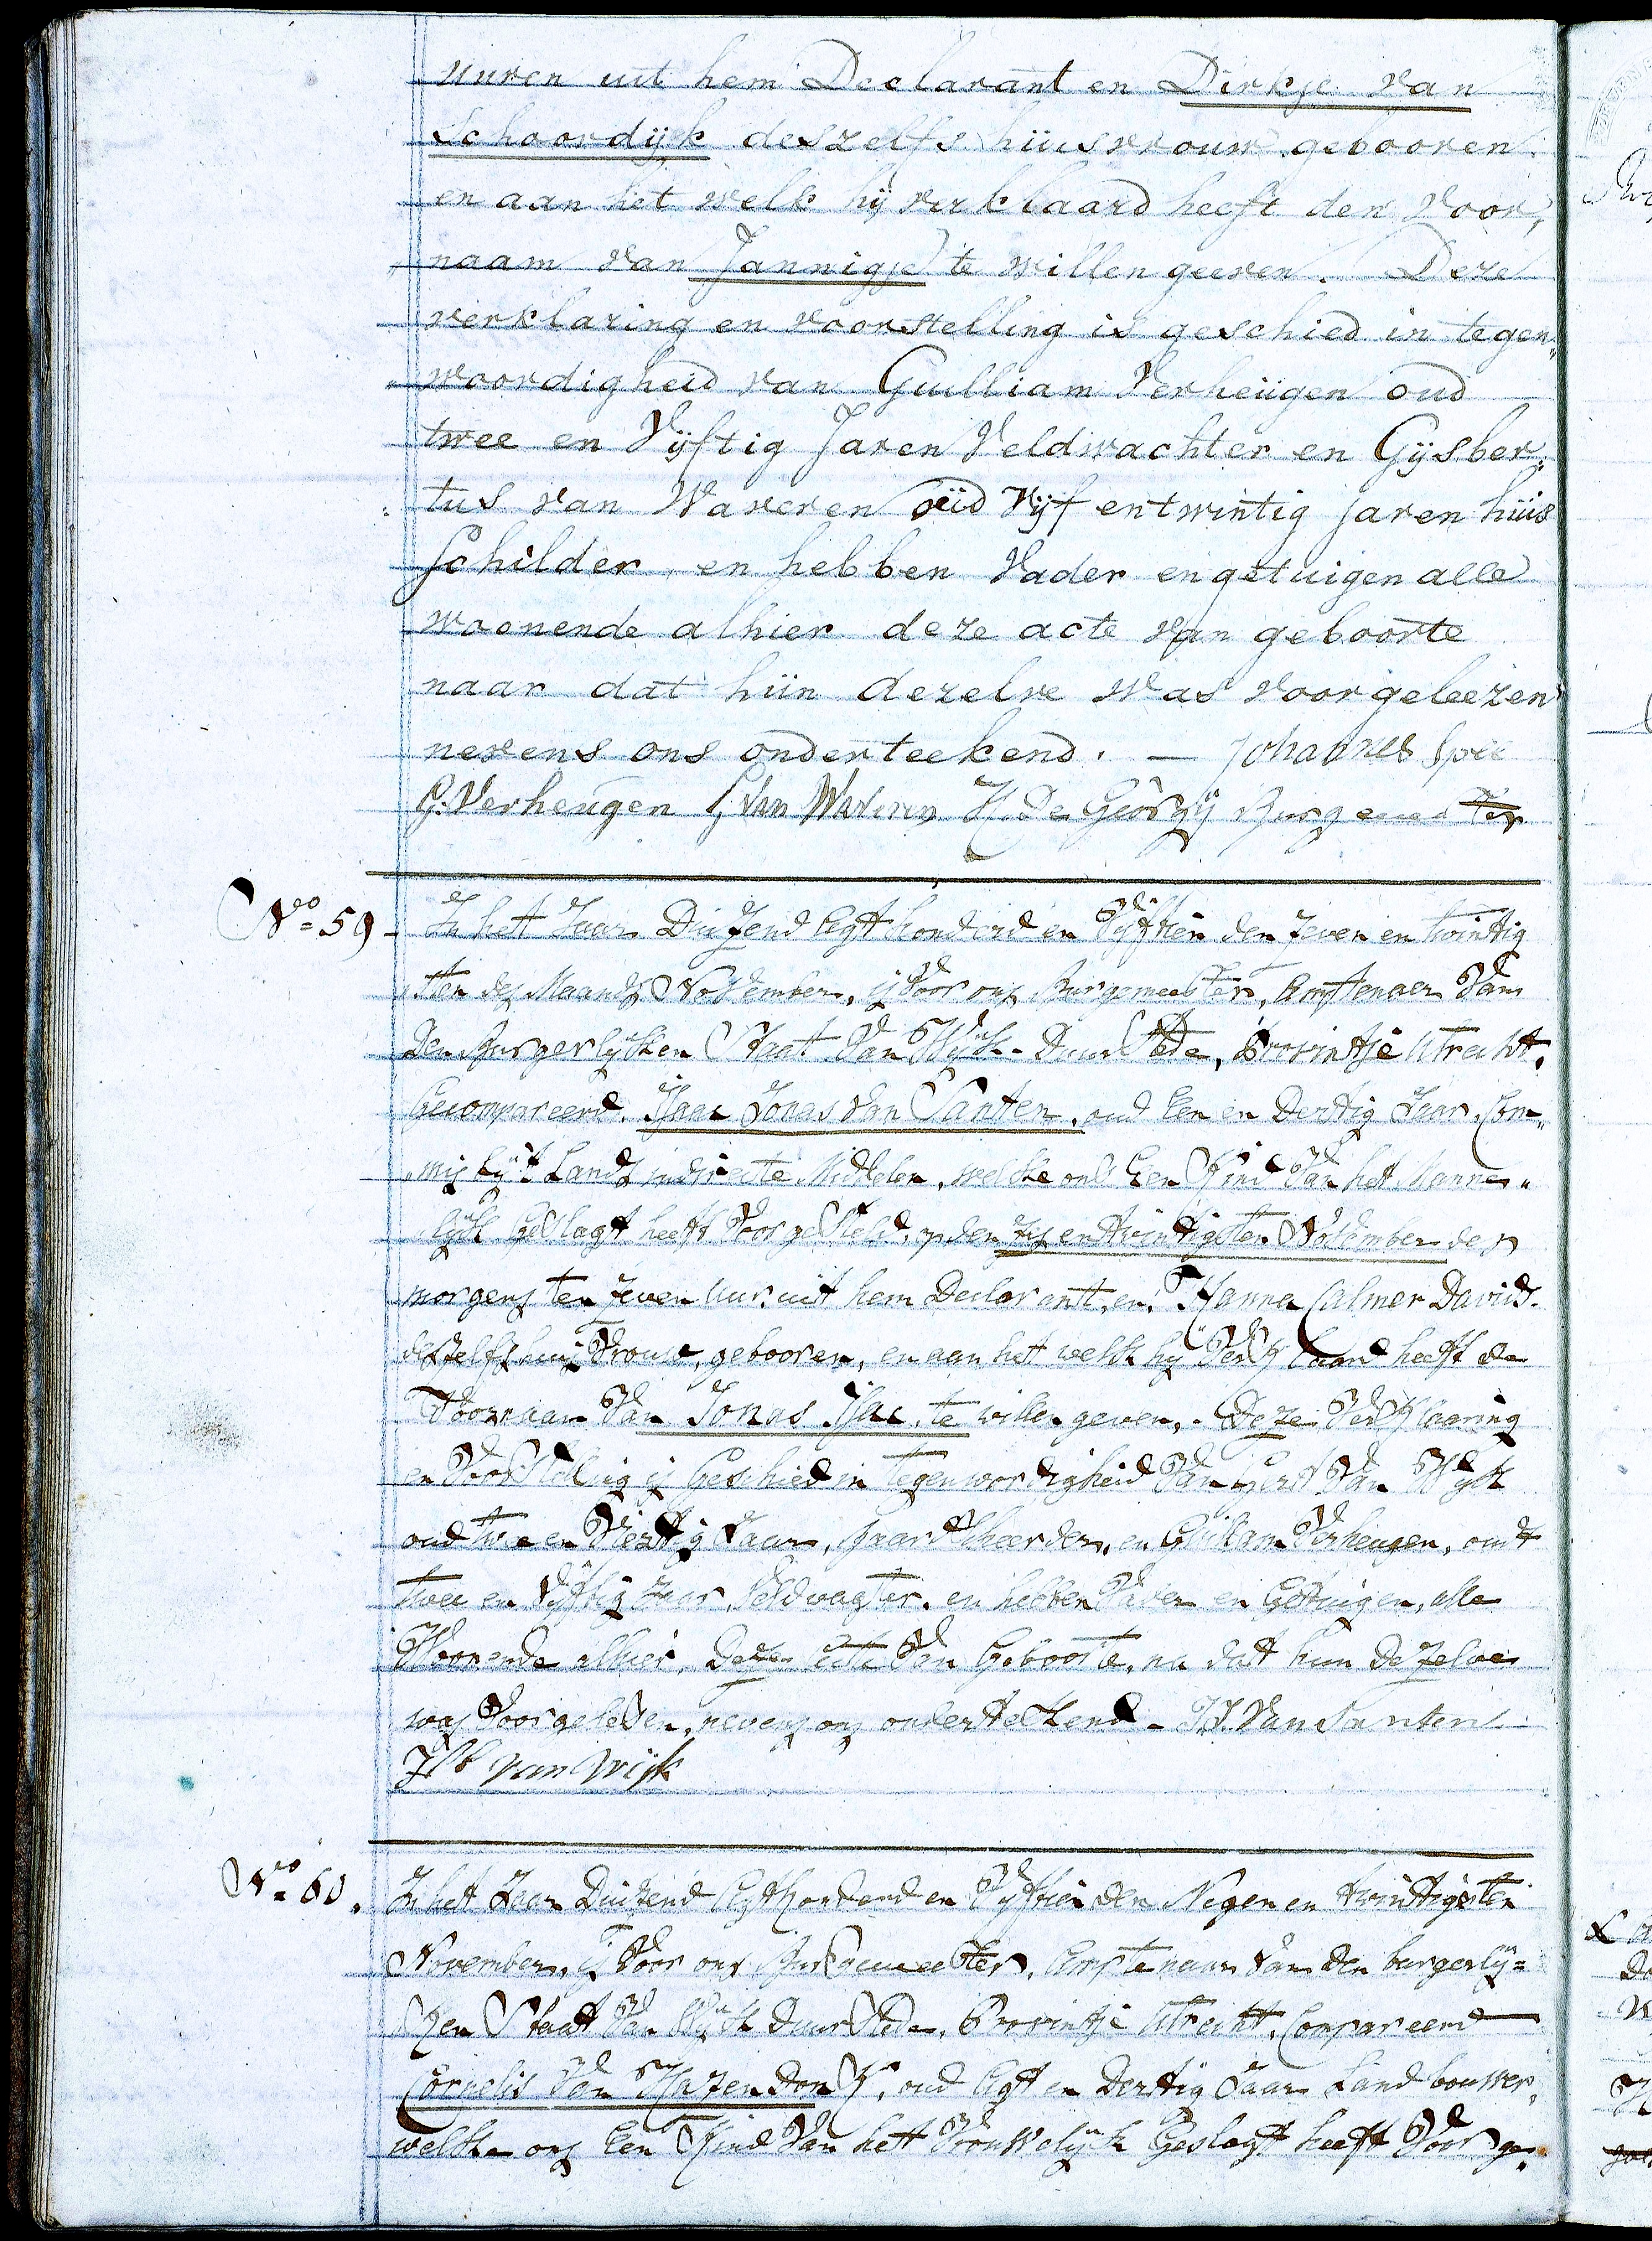 uuren uit hem Declarant en Dirkje van
Schoordijk deszelfs huisvrouw gebooren
en aan het welk hij verklaard heeft den Voor„
„naam van Jannigje te willen geeven. Deze
verklaring en voorstelling is geschied in tegen„
„woordigheid van Guilliam Verheugen oud
twee en Vijftig Jaren Veldwachter en Gijsber„
„tus van Waveren oud Vijf entwintig jaren huis
Schilder, en hebben Vader en getuigen alle
woonende alhier deze acte van geboorte
naar dat hun dezelve was voorgeleezen
nevens ons onderteekend. — Johannes Spee
G: Verheugen G van Waveren H. De Georgij Burgemeester
No 59 - In het Jaar Duizend Agt honderd en Vijftien den zeven en twintig
sten des Maands November, is Voor ons Burgemeester, Amptenaer Van
den Burgerlijken Staat Van Wijk-Duurstede, Provintje Utrecht,
Gecompareerd, Isaac Jonas van Santen, oud Een en Dertig Jaar, Com„
„mis bij 's Lands indirecte Middelen, welke ons Een Kind Van het Manne„
lijk Geslagt heeft Voorgesteld, op den zes entwintigsten November des
morgens ten zeven uur uit hem Declarant, en Hanna Calmer Davids.
deszelfs huisvrouw, gebooren, en aan het welk hij Verklaard heeft de
Voornaam Van Jonas Isac te willen geven,. Deze Verklaaring
en Voorstelling is Geschied in tegenwoordigheid Van Gerit Van Wijk
oud twe en Viertig Jaar, baardscheerder, en Guiliam Verheugen, oudt
twee en Vijftig Jaar, Veldwagter, en hebben Vader en Getuigen, alle
Woonende alhier, Deze acte Van Geboorte, na dat hun dezelve
was Voorgelesen, nevens ons ondertekend - I.J. Van Santen
van Wijk
No 60. In het Jaar Duizend Agthonderd en Vijftien den Negen en twintigsten
November, is Voor ons Burgemeester, Amptenaar van den burgerlij=
ken Staat Van Wijk Duurstede, Provintje Utrecht, Compareerd
Cornelis Van Hazendonk, oud Agt en Dertig Jaar Landbouwer,
welke ons Een Kind Van het Vrouwelijk Geslagt heeft Voorge„